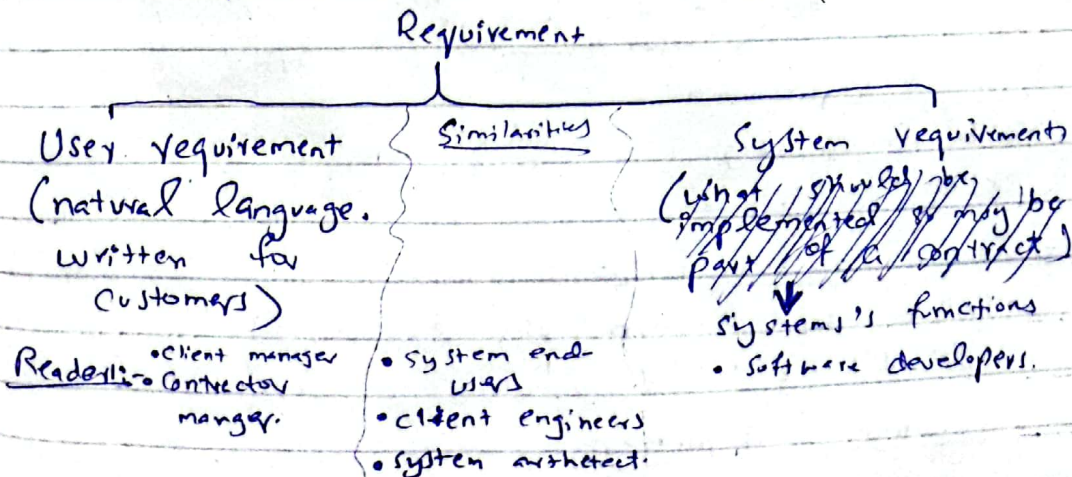 Requirement
User requirement
(natural language.
written for
customers)
Readers:-
• Client manager
• Contrector
manger.
Similarities
• system end-
users
• client engineers
• system arthetect.
System requirements
(what should be
implemented so may be
part of a contract)
systems's functions
• software developers.